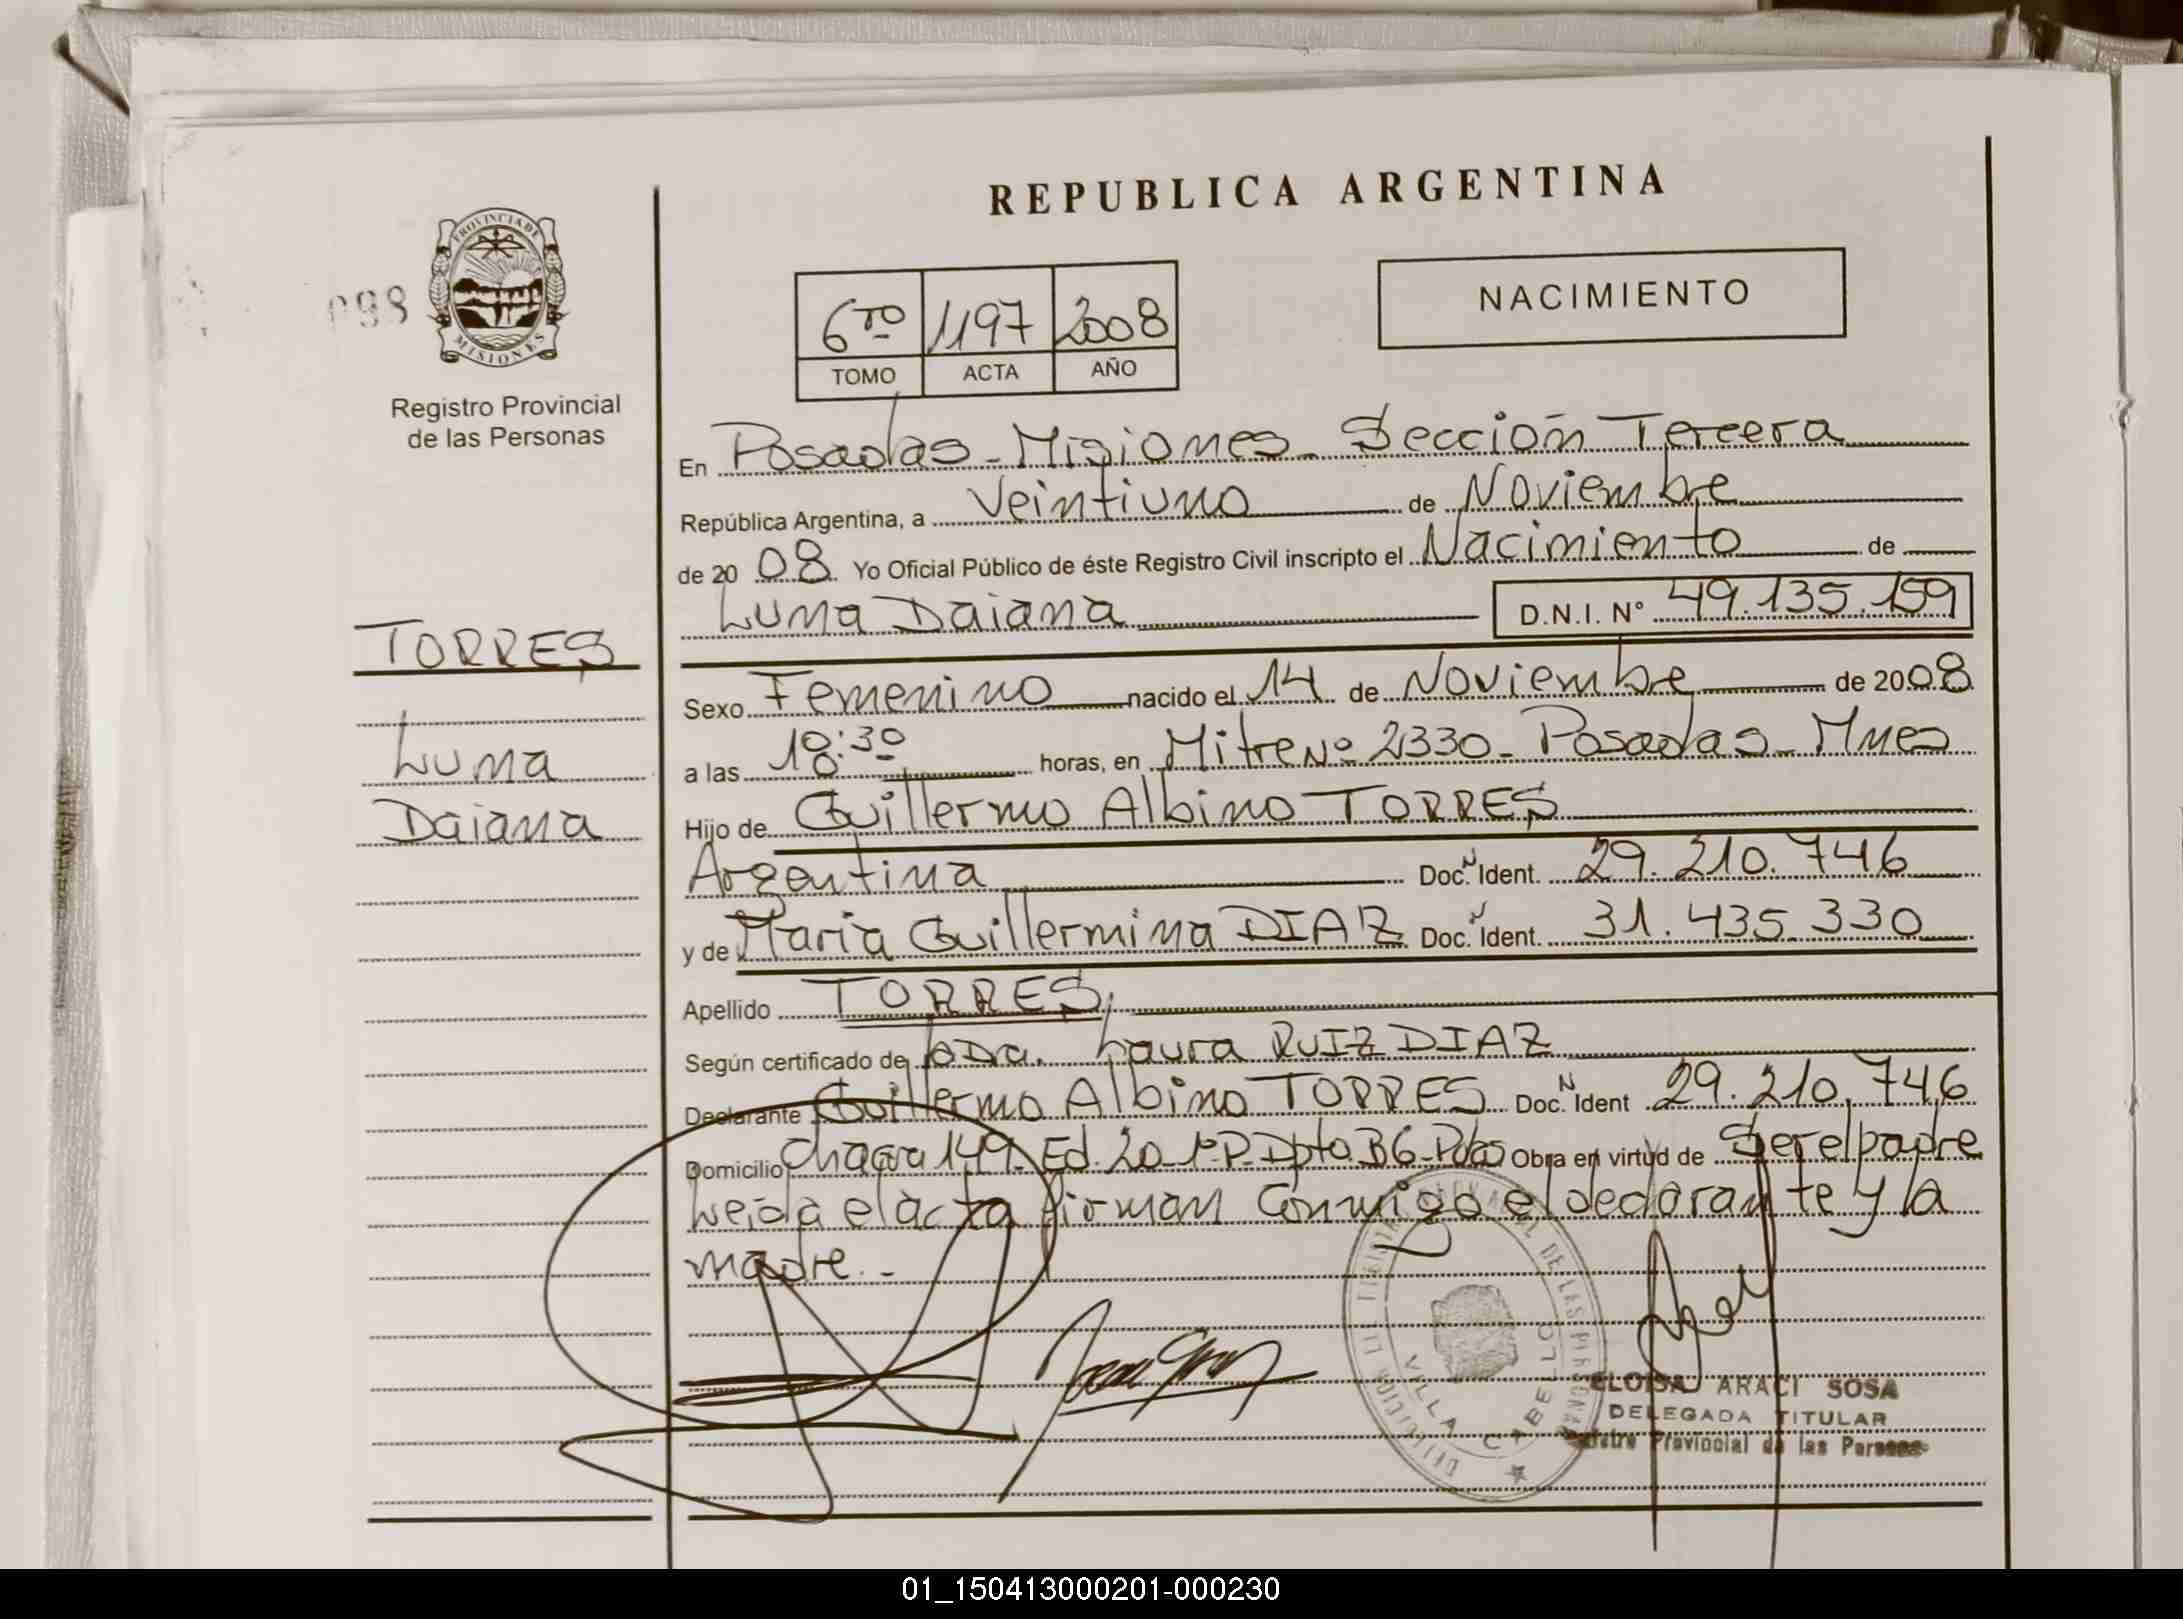 REPUBLICA ARGENTINA
PROVINCIA DE
MISIONES
098
Registro Provincial
de las Personas
NACIMIENTO
6TO 1197 2008
TOMO ACTA AÑO
En Posadas - Misiones - Sección Tercera
República Argentina, a Veintiuno de Noviembre
de 2008 Yo Oficial Público de éste Registro Civil inscripto el Nacimiento de
Luna Daiana D.N.I. N° 49.135.159
TORRES
Luna
Daiana
Sexo Femenino nacido el 14 de Noviembre de 2008
a las 18:30 horas, en Mitre Nº 2330 - Posadas - Mnes
Hijo de Guillermo Albino TORRES
Argentina Doc. N Ident. 29.210.746
y de Maria Guillermina DIAZ Doc. N Ident. 31.435.330
Apellido TORRES
Según certificado de la Dra. Laura RUIZ DIAZ
Declarante Guillermo Albino TORRES Doc. N Ident 29.210.746
Domicilio Chacra 149 - Ed. 20 1º P - Dpto B6 - Pdas Obra en virtud de Ser el padre
Leída el acta firman Conmigo el declarante y la
madre. -
DE LAS PERSONAS
VILLA CABELLO
ELOISA ARACI SOSA
DELEGADA TITULAR
Provincial de las Personas
01_150413000201-000230